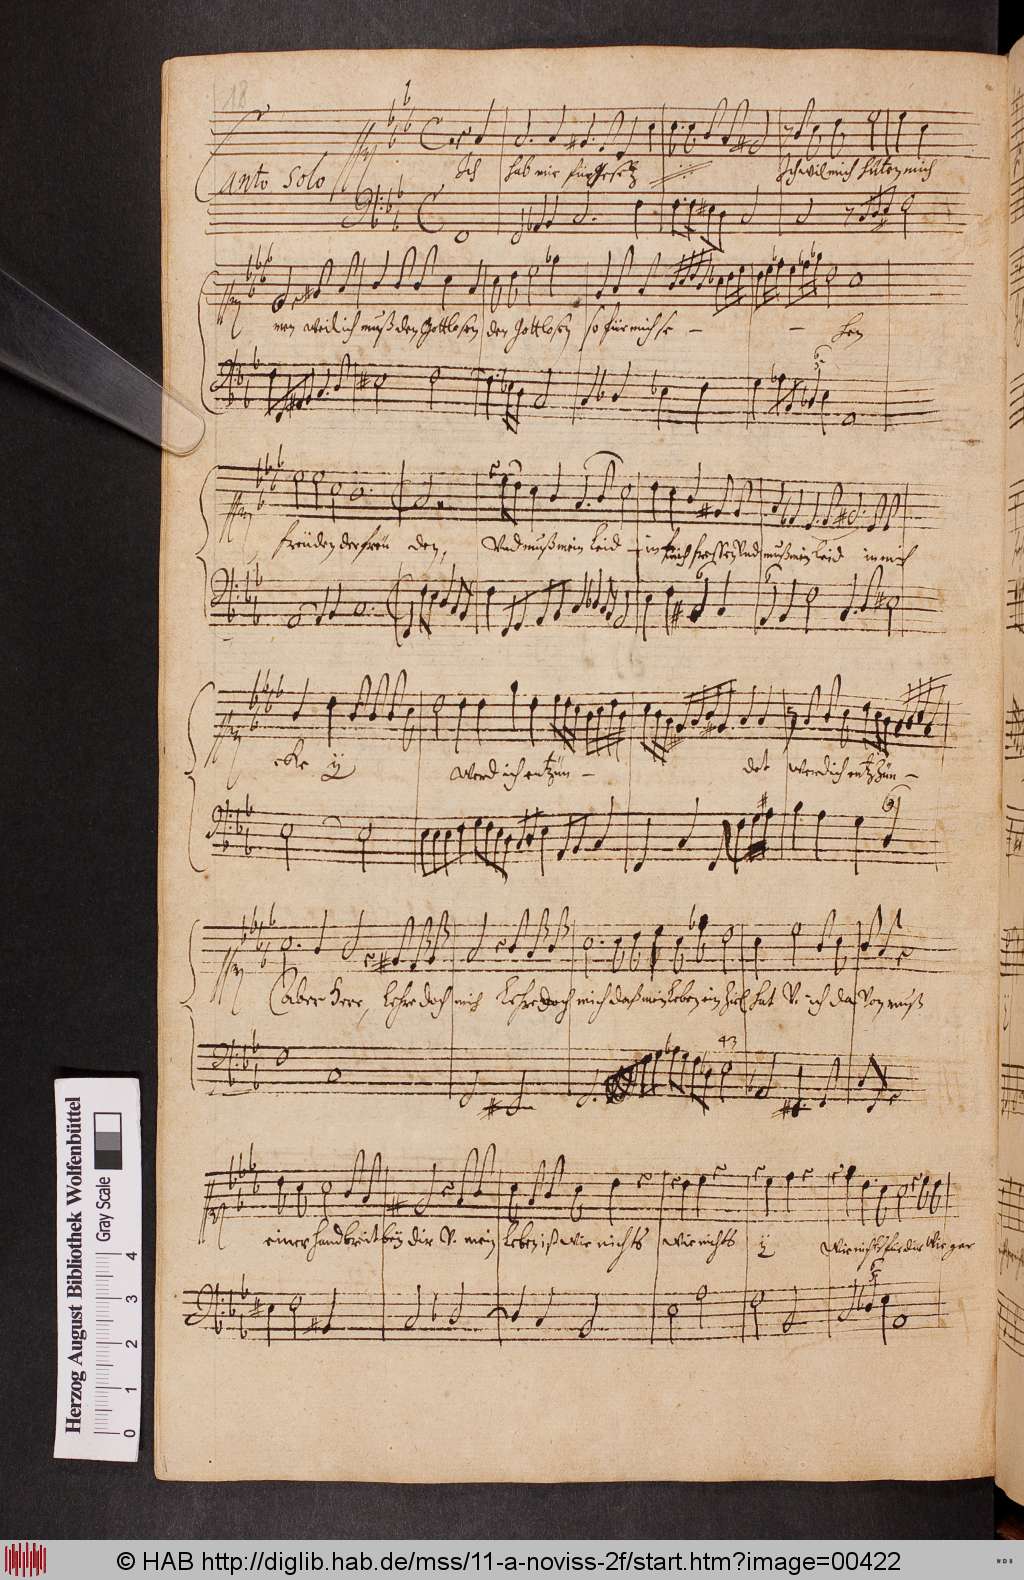 18
Canto Solo
Ich hab mir fürgesetz Ich wil mich hüten mich
men weil ich muß den Gottlosen den Gottlosen so für mich se - - hen
freuden der freu den, Und muß mein leid in mich fressen Und muß mein leid in mich
werd ich entzün - det werd ich entzün -
aber Herr, lehre doch mich lehre doch mich daß mein leben ein Ziel hat V. ich da von muß
43
einer handbreit beÿ dir V. mein leben ist wie nichts wie nichts ÿ wie nichts für dir wie gar
Herzog August Bibliothek Wolfenbüttel
Gray Scale
0 1 2 3 4
© HAB http://diglib.hab.de/mss/11-a-noviss-2f/start.htm?image=00422